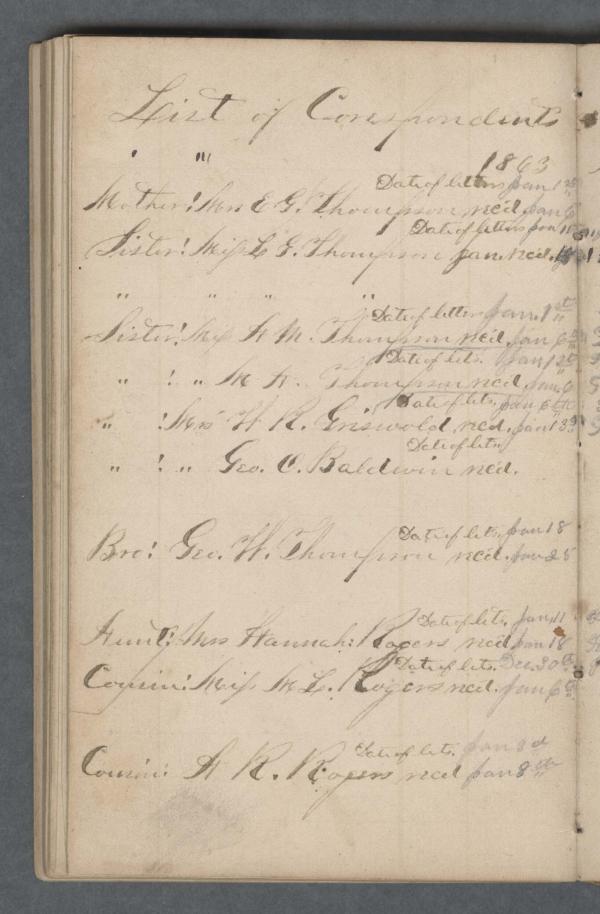 List of Correspondents
" "'
1863
Date of letters Jan 1st
Mother: Mrs E G. Thompson rec'd Jan 6
Date of letters Jan 11
Sister: Miss L G. Thompson Jan. rec'd. 18
" " " "
Date of letters Jan. 1st
Sister: Miss A M. Thompson rec'd Jan 6th
Date of lets. Jan 1st
" : " M A. Thompson rec'd. Jan. 6
Date of lets. Jan 6th
" : Mrs H R. Griswold rec'd. Jan 13th
Date of lets
" : " Geo. C. Baldwin rec'd.
Date of lets. Jan 18
Bro: Geo. W. Thompson rec'd. Jan 25
Date of lets. Jan. 11
Aunt: Mrs Hannah: Rogers rec'd Jan 18
Date of lets. Dec. 30th
Cousin: Miss M L. Rogers rec'd. Jan 6th
Date of lets. Jan 3d
Cousin: A R. Rogers rec'd Jan 8th